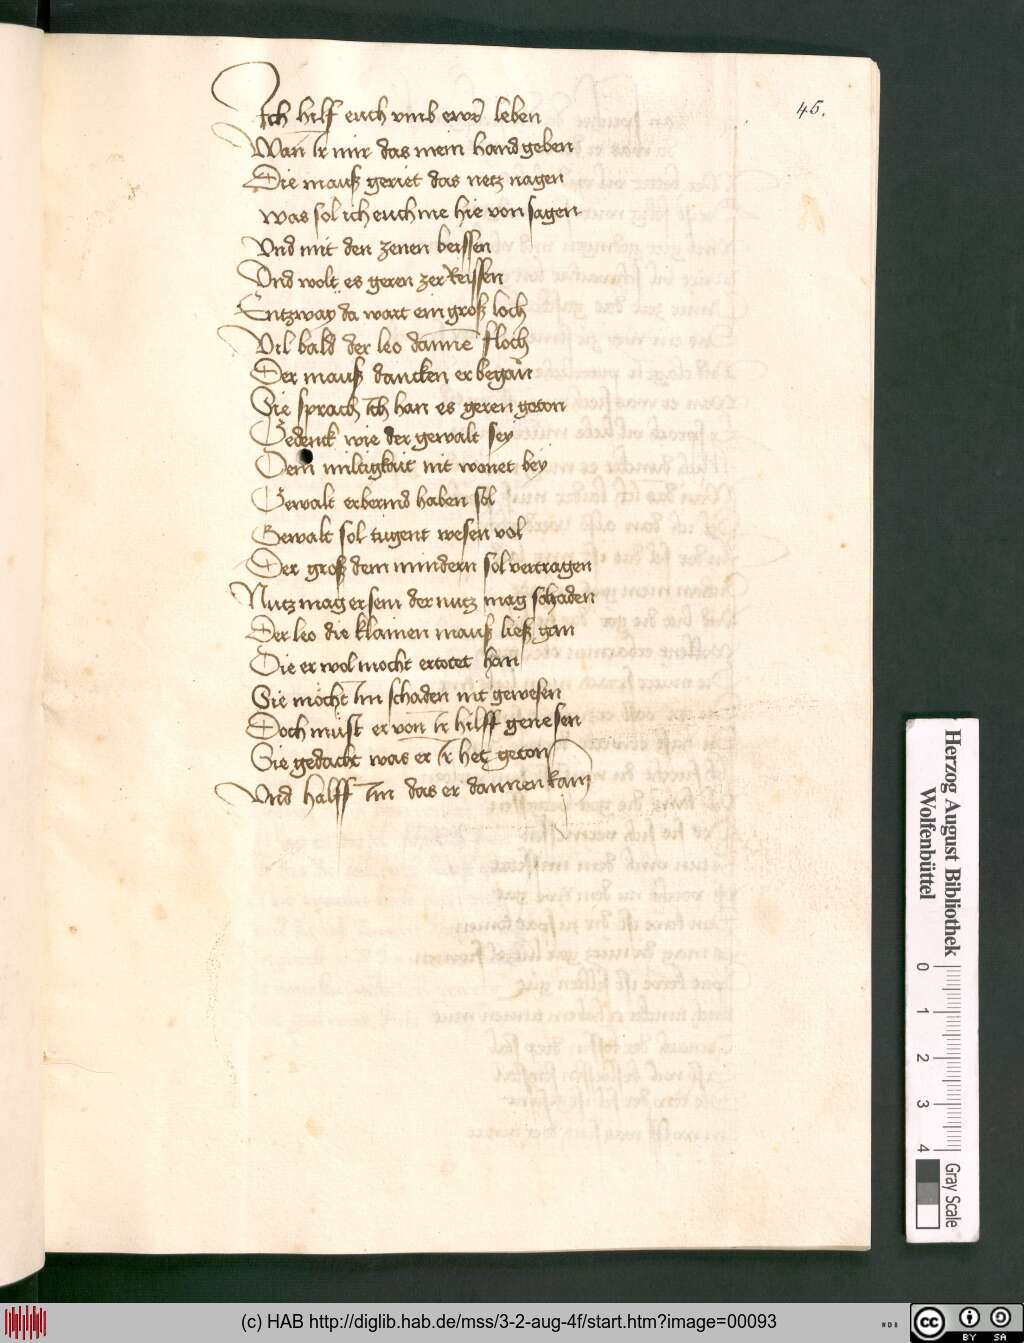 45.
Ich hilf euch vmb ewr̄ leben
Wan̄ Ir mir das mein hand geben
Die mauß geriet das netz nagen
was sol ich euch me hie von sagen
Vnd mit den zenen beissen
Vnd wolt es geren zerreissen
Entzway da wart ein groß loch
Vil bald der leo danne floch
Der mauß dancken er began
Sie sprach Ich han es geren geton
Gedenck wie der gewalt sey
Dem miltigkait nit wonet bey
Gewalt erbermd haben sol
Gewalt sol tugent wesen vol
Der groß dem mindern sol vertragen
Nutz mag er sein der nutz mag schaden
Der leo die klainen mauß ließ gan
Die er wol mocht ertotet han
Sie möcht Im schaden nit gewesen
Doch must er von Ir hilff genesen
Sie gedacht was er Ir het geton
Vnd halff Im das er dannen kam
Herzog August Bibliothek
Wolfenbüttel
0 1 2 3 4
Gray Scale
(c) HAB http://diglib.hab.de/mss/3-2-aug-4f/start.htm?image=00093
WDB
cc BY SA